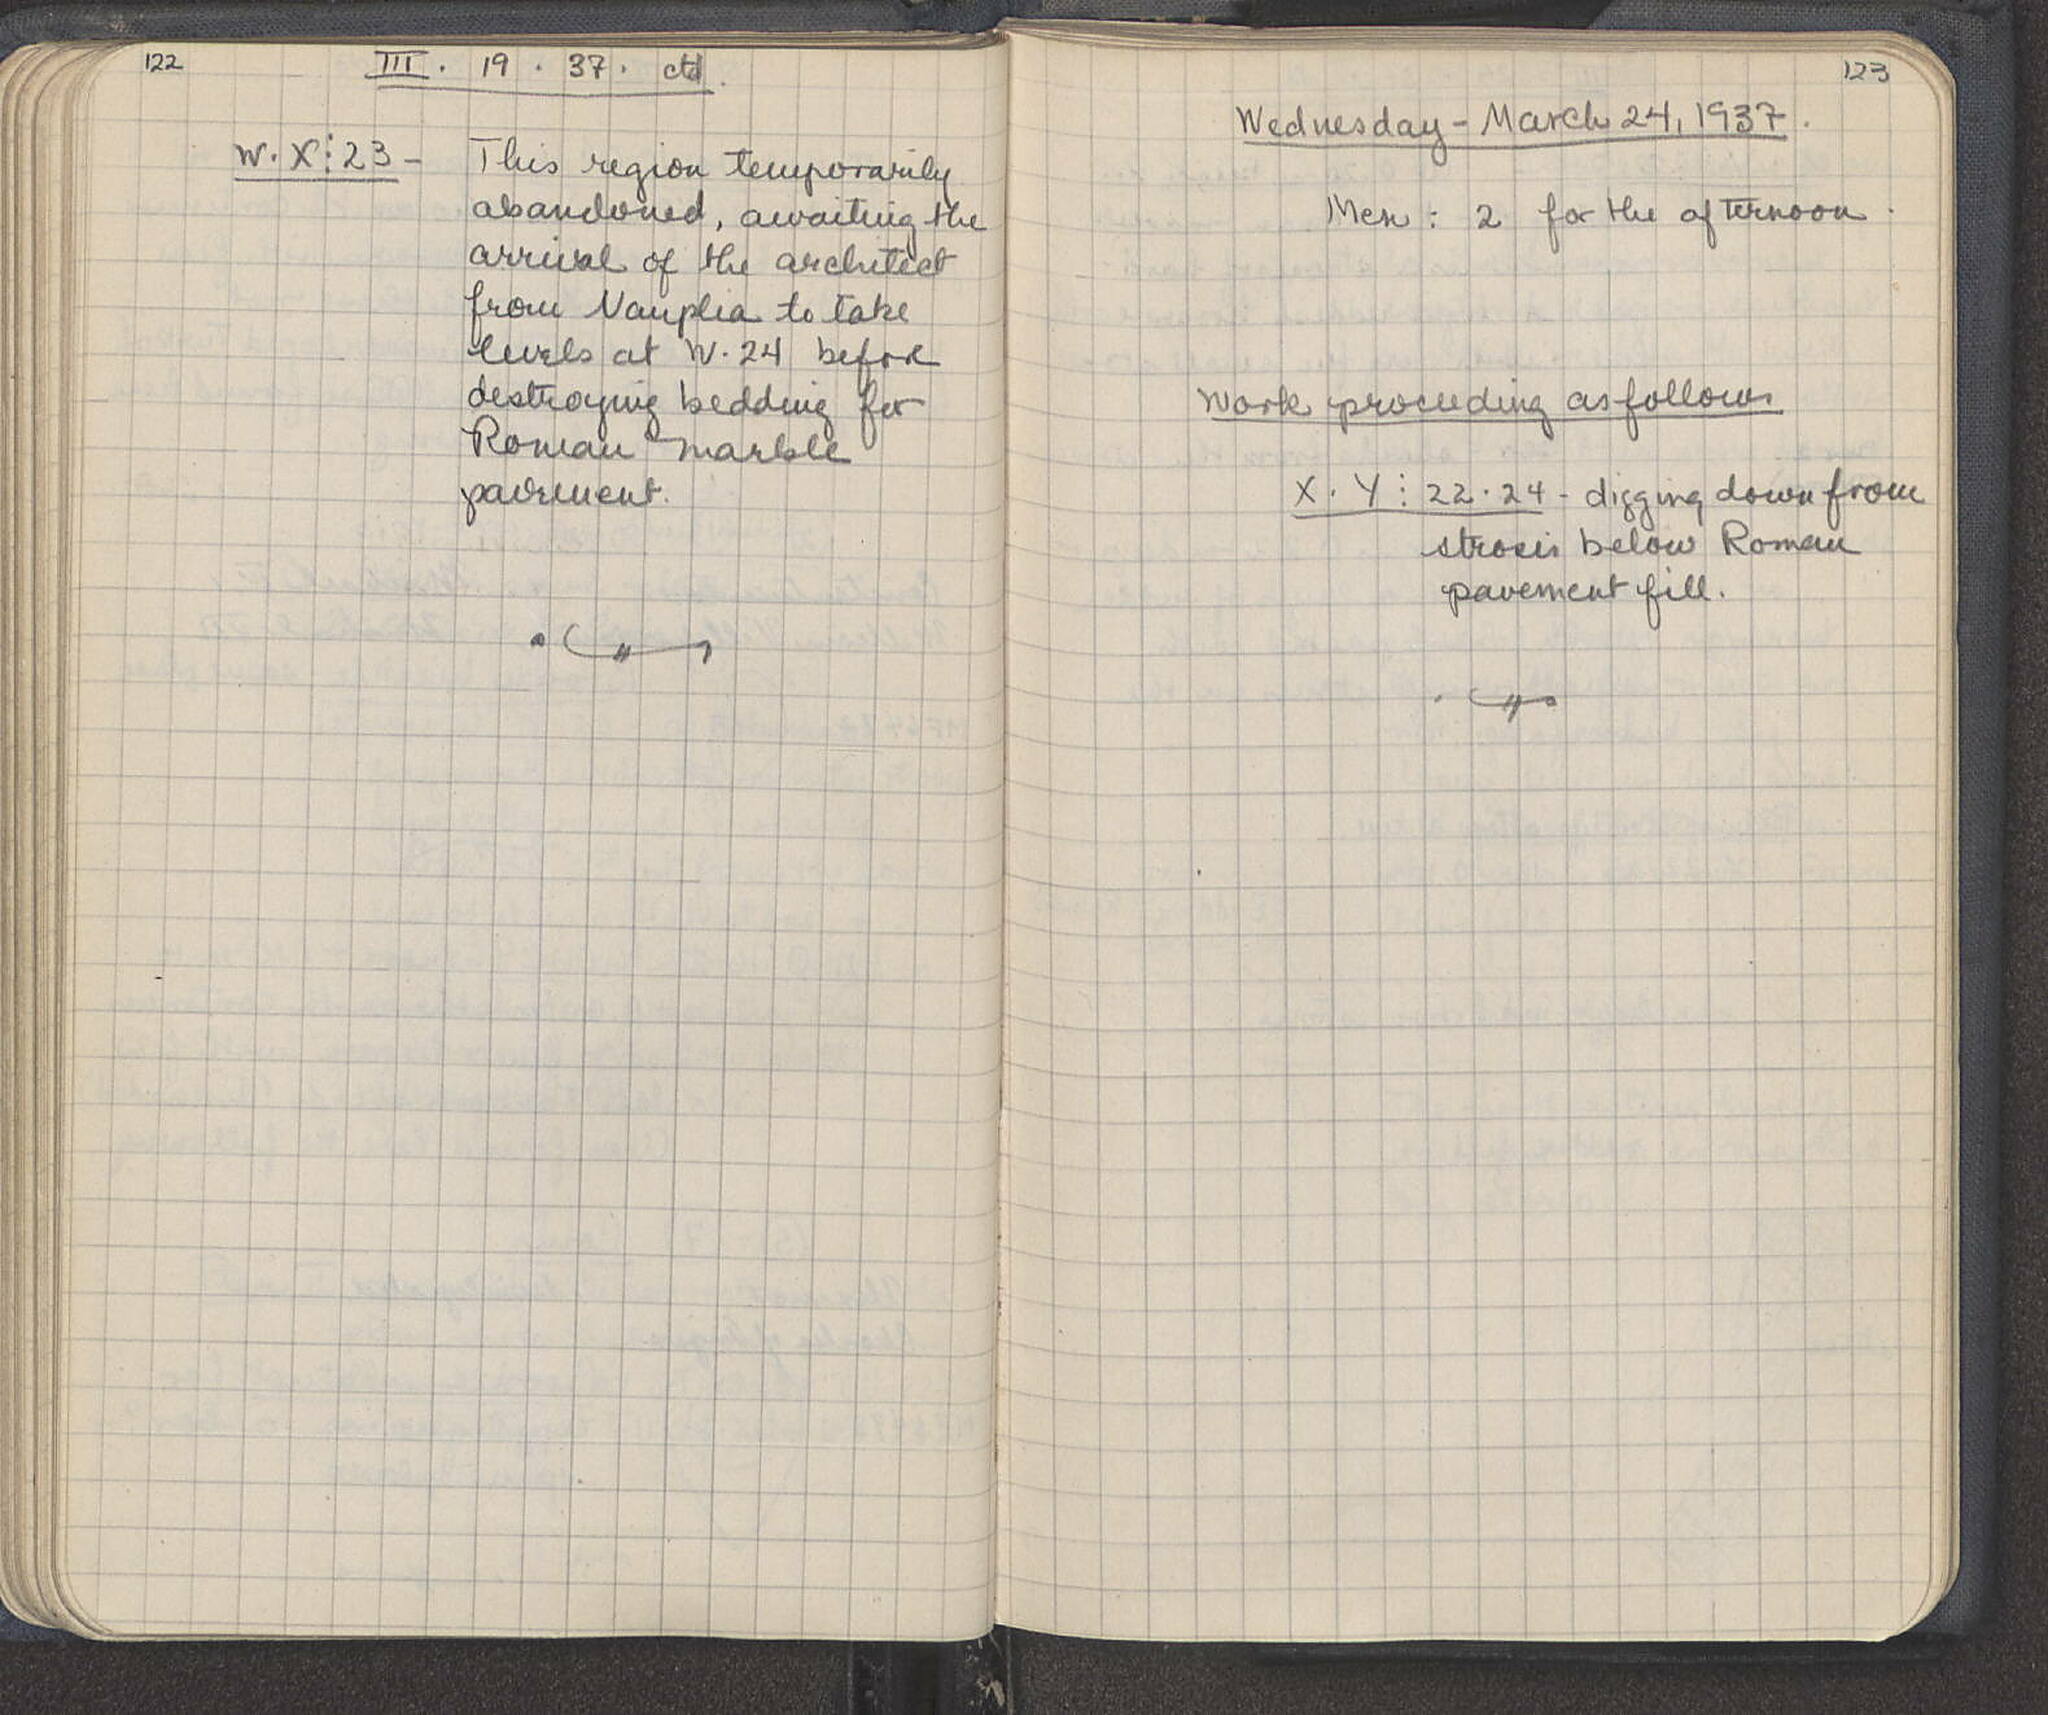 122
III . 19 . 37 . ctd.
W . X : 23 - This region temporarily
abandoned, awaiting the
arrival of the architect
from Nauplia to take
levels at W . 24 before
destroying bedding for
Roman marble
pavement.
123
Wednesday - March 24, 1937.
Men : 2 for the afternoon.
Work proceeding as follows
X . Y : 22 . 24 - digging down from
strosis below Roman
pavement fill.